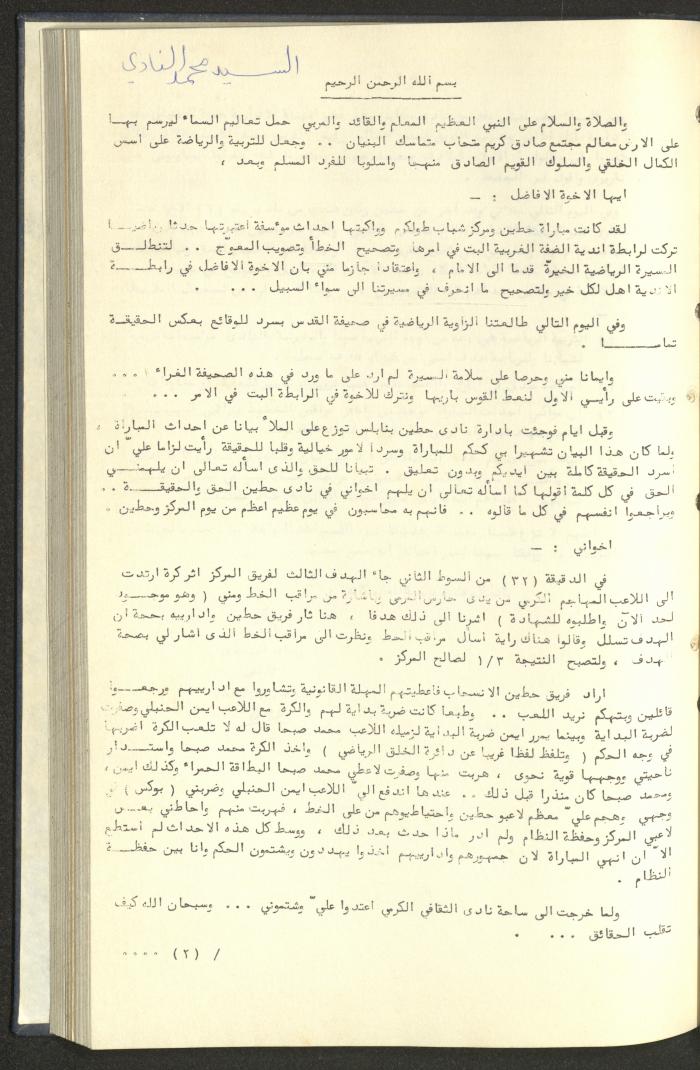 السيد محمد النادي
بسم الله الرحمن الرحيم
والصلاة والسلام على النبي العظيم المعلم والقائد والمربي حمل تعاليم السماء ليرسم بهـا
على الارض معالم مجتمع صادق كريم متحاب متماسك البنيان .. وجعل للتربية والرياضة على أسس
الكمال الخلقي والسلوك القويم الصادق منهجا واسلوبا للفرد المسلم وبعد ،
ايها الاخوة الافاضل : ـ
لقد كانت مباراة حطين ومركز شباب طولكرم وواكبتها احداث مؤسفة اعتبرتها حدثا رياضيـا
تركت لرابطة اندية الضفة الغربية البت في امرها وتصحيح الخطأ وتصويب المعوّج .. لتنطلـق
المسيرة الرياضية الخيرّة قدما الى الامام ، واعتقادا جازما مني بان الاخوة الافاضل في رابطـة
الاندية اهل لكل خير ولتصحيح ما انحرف في مسيرتنا الى سواء السبيل ... .
وفي اليوم التالي طالعتنا الزاوية الرياضية في صحيفة القدس بسرد للوقائع بعكس الحقيقـة
تمامـــا .
وايمانا مني وحرصا على سلامة المسيرة لم ارد على ما ورد في هذه الصحيفة الغراء ....
وبقيت على رأيي الاول لنعط القوس باريها ونترك للأخوة في الرابطة البت في الامر ...
وقبل ايام فوجئت بادارة نادى حطين بنابلس توزع على الملأ بيانا عن احداث المباراة .
ولما كان هذا البيان تشهيرا بي كحكم للمباراة وسردا لامور خيالية وقلبا للحقيقة رأيت لزاما عليّ ان
أسرد الحقيقة كاملة بين ايديكم وبدون تعليق . تبيانا للحق والذى اسأله تعالى ان يلهمنـي
الحق في كل كلمة اقولها كما اسأله تعالى ان يلهم اخواني في نادى حطين الحق والحقيقـــة ..
ويراجعوا انفسهم في كل ما قالوه .. فانهم به محاسبون في يوم عظيم اعظم من يوم المركز وحطين .
اخواني : ـ
في الدقيقة (٣٢) من السوط الثاني جاء الهدف الثالث لفريق المركز اثر كرة ارتدت
الى اللاعب المهاجم الكرمي من يدى حارس المرمى وباشارة من مراقب الخط ومني ( وهو موجــود
لحد الآن واطلبوه للشهادة ) اشرنا الى ذلك هدفا ، هنا ثار فريق حطين واداريه بحجة ان
الهدف تسلل وقالوا هناك راية أسأل مراقب الخط ونظرت الى مراقب الخط الذى اشار لي بصحة
الهدف ، ولتصبح النتيجة ١/٣ لصالح المركز .
اراد فريق حطين الانسحاب فأعطيتهم المهلة القانونية وتشاوروا مع ادارييهم ورجعـــوا
قائلين وبتهكم نريد اللعب .. وطبعا كانت ضربة بداية لهم والكرة مع اللاعب ايمن الحنبلي وصفرت
لضربة البداية وبينما يمرر ايمن ضربة البداية لزميله اللاعب محمد صبحا قال له لا تلعب الكرة اضربها
في وجه الحكم ( وتلفظ لفظا غريبا عن دائرة الخلق الرياضي ) واخذ الكرة محمد صبحا واستــدار
ناحيتي ووجهها قوية نحوى ، هربت منها وصفرت لاعطي محمد صبحا البطاقة الحمراء وكذلك ايمن ،
ومحمد صبحا كان منذرا قبل ذلك .. عندها اندفع اليّ اللاعب ايمن الحنبلي وضربني ( بوكس ) في
وجهي وهجم عليّ معظم لاعبو حطين واحتياطيوهم من على الخط ، فهربت منهم واحاطني بعـض
لاعبي المركز وحفظة النظام ولم ادر ماذا حدث بعد ذلك ، ووسط كل هذه الاحداث لم أستطع
الاّ ان انهي المباراة لان جمهورهم وادارييهم اخذوا يهددون ويشتمون الحكم وانا بين حفظـة
النظام .
ولما خرجت الى ساحة نادى الثقافي الكرمي اعتدوا عليّ وشتموني ... وسبحان الله كيف
تقلب الحقائق ... .
/ (٢) ....